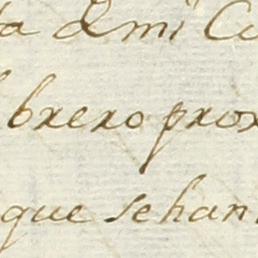 ta de mi Cu
brero prox
que se han